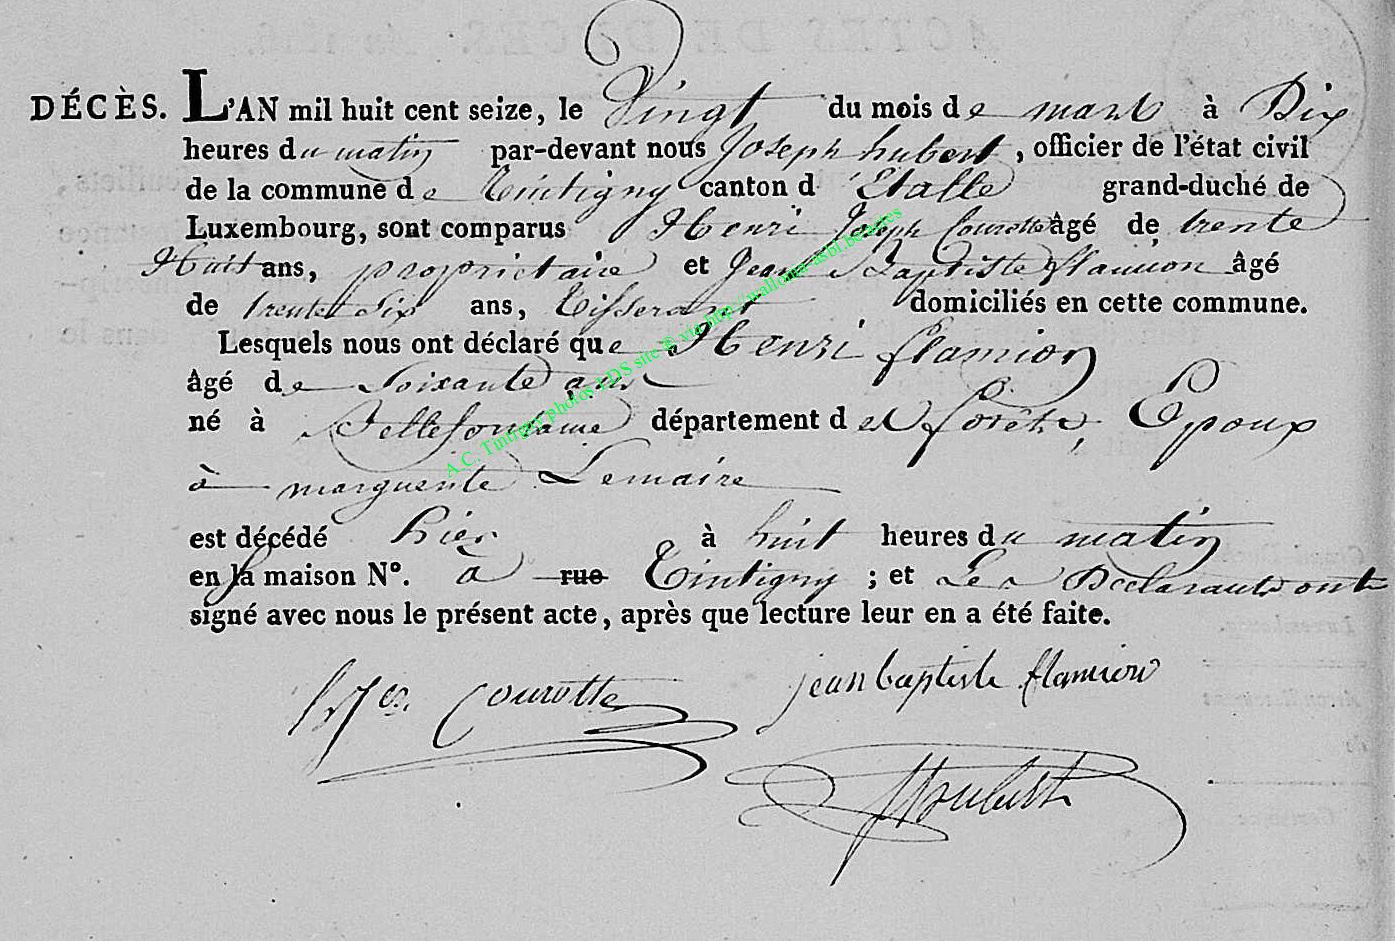 DÉCÈS. L'AN mil huit cent seize, le Vingt du mois de mars à Dix
heures du matin par-devant nous Joseph hubert, officier de l'état civil
de la commune de Tintigny canton d'Etalle grand-duché de
Luxembourg, sont comparus Henri Joseph Courotte âgé de trente
Huit ans, propriétaire et Jean Baptiste flamion âgé
de trente Six ans, Tisserant domiciliés en cette commune.
Lesquels nous ont déclaré que Henri flamion
âgé de Soixante ans
né à Bellefontaine département des forêts, Epoux
à marguerite Lemaire
est décédé hier à huit heures du matin
en sa maison N°. à rue Tintigny ; et Les Déclarants ont
signé avec nous le présent acte, après que lecture leur en a été faite.
Courotte jean baptiste flamion
A.C. Tintigny photos LDS site © via http://wallonia-asbl.be/actes